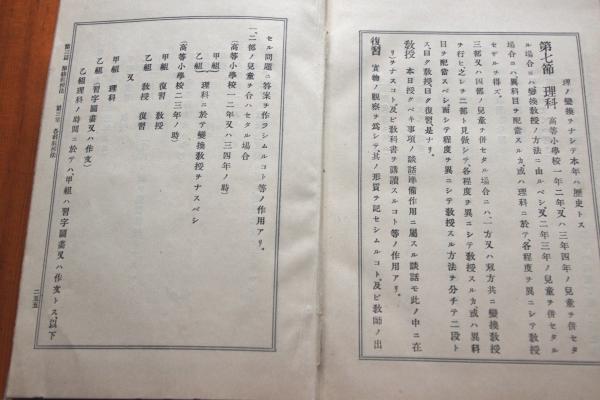 理ノ變換ヲナシテ本年ハ歴史トス
第七節 理科 高等小學校一年二年、又ハ三年四年ノ兒童ヲ併セタ
ル場合ニハ變換教授ノ方法ニ由ルベシ、又二年三年ノ兒童ヲ併セタル
場合ニハ異科目ヲ配當スルカ、或ハ理科ニ於テ、各程度ヲ異ニシテ教授
セザルヲ得ズ。
三部又ハ四部ノ兒童ヲ併セタル場合ニハ、一方又ハ双方共ニ變換教授
ヲ行ヒ、之レヲ二部ト見做シテ、各程度ヲ異ニシテ教授スルカ、或ハ異科
目ヲ配當スベシ、而シテ程度ヲ異ニシテ教授スル方法ヲ分チテ二段ト
ス、曰ク教授、曰ク復習是ナリ。
教授 本日授クベキ事項ノ談話準備作用ニ屬スル談話モ此ノ中ニ在
リヲナスコト、及ビ教科書ヲ講讀スルコト等ノ作用アリ。
復習 實物ノ觀察ヲ爲シテ、其ノ形質ヲ記セシムルコト、及ビ教師ノ出
セル問題ニ答案ヲ作ラシムルコト等ノ作用アリ。
一、二部ノ兒童ヲ合ハセタル場合
(高等小學校一二年又ハ三四年ノ時)
甲組
乙組 理科ニ於テ變換教授ヲナスベシ
(高等小學校二三年ノ時)
甲組 復習 教授
乙組 教授 復習
又
甲組 理科
乙組(習字圖畫又ハ作文)
乙組理科ノ時間ニ於テハ、甲組ハ習字圖畫又ハ作文トス、以下
第二章 各科教授法
二五五